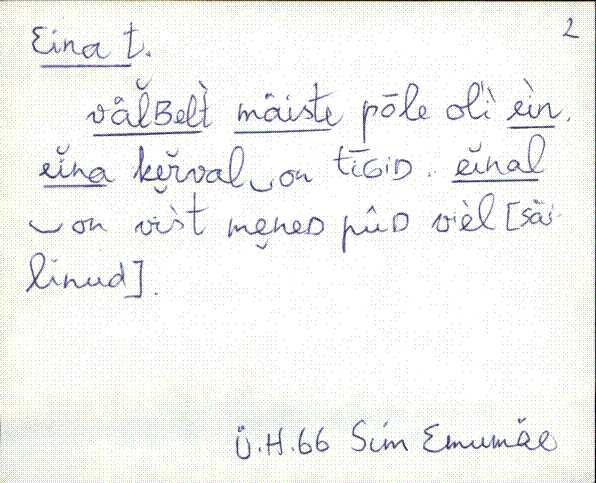 2
Eina t.
vâl̆Belt̀ mäiste pōle olì eìn.
eĭna ke̮r̆val‿on tīGiD. eĭnal
‿on vis̀t me̮neD pûD vièl [säi-
linud].
Ü.H.66 Sim Emumäe